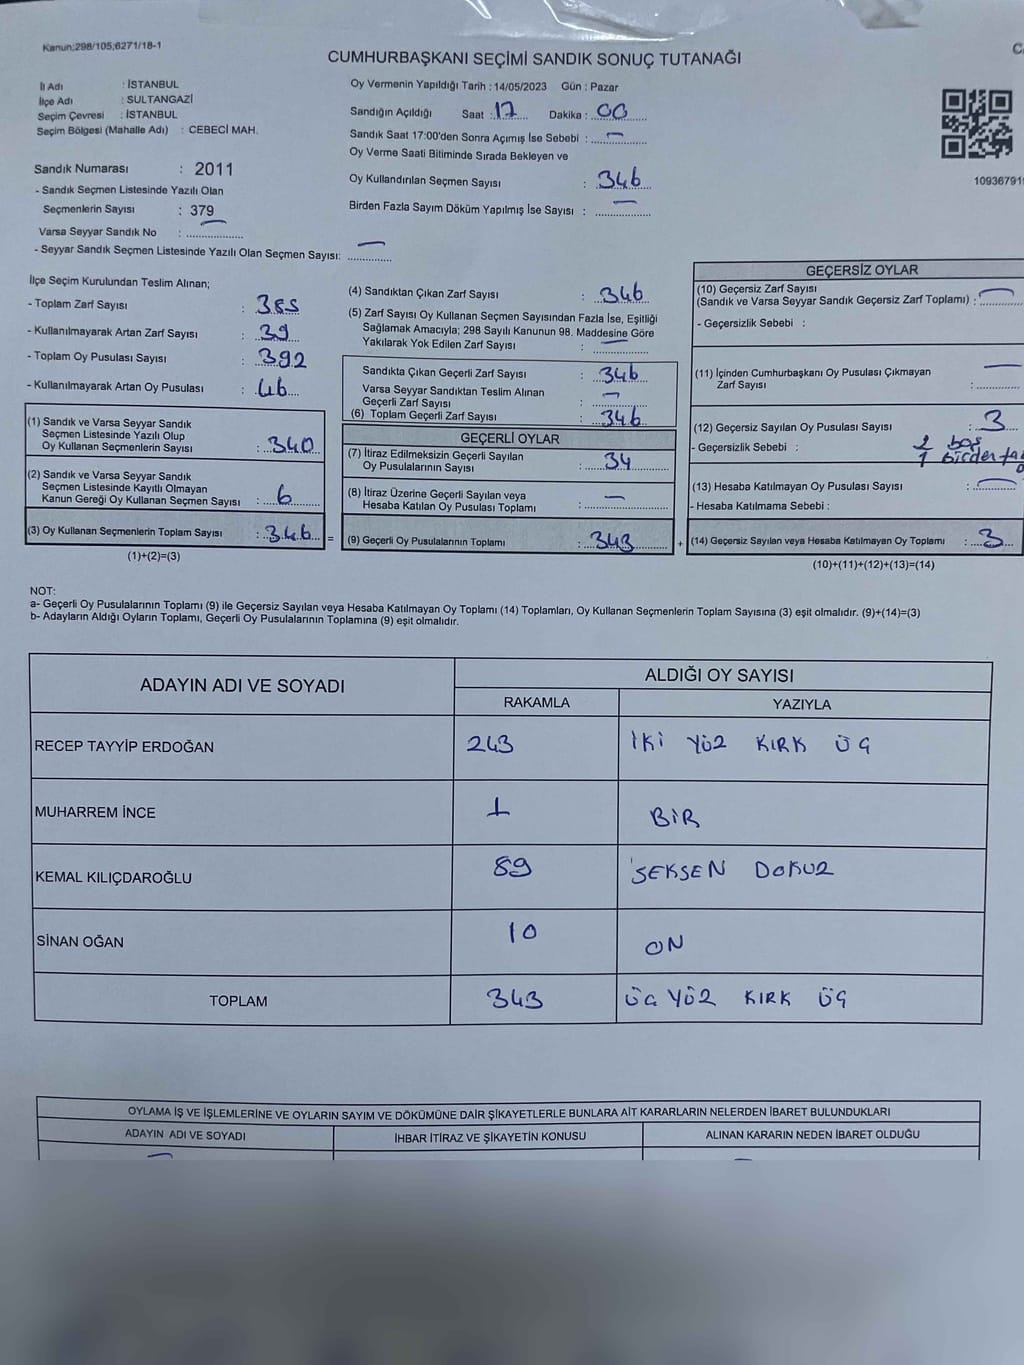 Kanun;298/105,6271/18-1
CUMHURBAŞKANI SEÇİMİ SANDIK SONUÇ TUTANAĞI
İl Adı : İSTANBUL
İlçe Adı : SULTANGAZİ
Seçim Çevresi : İSTANBUL
Seçim Bölgesi (Mahalle Adı) : CEBECİ MAH.
Oy Vermenin Yapıldığı Tarih : 14/05/2023 Gün : Pazar
Sandığın Açıldığı Saat : 17 Dakika : 00
Sandık Saat 17:00'den Sonra Açımış İse Sebebi : —
Oy Verme Saati Bitiminde Sırada Bekleyen ve
Oy Kullandırılan Seçmen Sayısı : 346
Birden Fazla Sayım Döküm Yapılmış İse Sayısı : —
1093679
Sandık Numarası : 2011
- Sandık Seçmen Listesinde Yazılı Olan
Seçmenlerin Sayısı : 379
Varsa Seyyar Sandık No : —
- Seyyar Sandık Seçmen Listesinde Yazılı Olan Seçmen Sayısı: —
İlçe Seçim Kurulundan Teslim Alınan;
- Toplam Zarf Sayısı : 385
- Kullanılmayarak Artan Zarf Sayısı : 39
- Toplam Oy Pusulası Sayısı : 392
- Kullanılmayarak Artan Oy Pusulası : 46
(1) Sandık ve Varsa Seyyar Sandık
Seçmen Listesinde Yazılı Olup
Oy Kullanan Seçmenlerin Sayısı : 340
(2) Sandık ve Varsa Seyyar Sandık
Seçmen Listesinde Kayıtlı Olmayan
Kanun Gereği Oy Kullanan Seçmen Sayısı : 6
(3) Oy Kullanan Seçmenlerin Toplam Sayısı : 346 =
(1)+(2)=(3)
(4) Sandıktan Çıkan Zarf Sayısı : 346
(5) Zarf Sayısı Oy Kullanan Seçmen Sayısından Fazla İse, Eşitliği
Sağlamak Amacıyla; 298 Sayılı Kanunun 98. Maddesine Göre
Yakılarak Yok Edilen Zarf Sayısı : —
Sandıkta Çıkan Geçerli Zarf Sayısı : 346
Varsa Seyyar Sandıktan Teslim Alınan
Geçerli Zarf Sayısı : —
(6) Toplam Geçerli Zarf Sayısı : 346
GEÇERLİ OYLAR
(7) İtiraz Edilmeksizin Geçerli Sayılan
Oy Pusulalarının Sayısı : 34
(8) İtiraz Üzerine Geçerli Sayılan veya
Hesaba Katılan Oy Pusulası Toplamı : —
(9) Geçerli Oy Pusulalarının Toplamı : 343 +
GEÇERSİZ OYLAR
(10) Geçersiz Zarf Sayısı
(Sandık ve Varsa Seyyar Sandık Geçersiz Zarf Toplamı) : —
- Geçersizlik Sebebi :
(11) İçinden Cumhurbaşkanı Oy Pusulası Çıkmayan
Zarf Sayısı : —
(12) Geçersiz Sayılan Oy Pusulası Sayısı : 3
- Geçersizlik Sebebi : 2 boş
1 birden
(13) Hesaba Katılmayan Oy Pusulası Sayısı : —
- Hesaba Katılmama Sebebi :
(14) Geçersiz Sayılan veya Hesaba Katılmayan Oy Toplamı : 3
(10)+(11)+(12)+(13)=(14)
NOT:
a- Geçerli Oy Pusulalarının Toplamı (9) ile Geçersiz Sayılan veya Hesaba Katılmayan Oy Toplamı (14) Toplamları, Oy Kullanan Seçmenlerin Toplam Sayısına (3) eşit olmalıdır. (9)+(14)=(3)
b- Adayların Aldığı Oyların Toplamı, Geçerli Oy Pusulalarının Toplamına (9) eşit olmalıdır.
ADAYIN ADI VE SOYADI ALDIĞI OY SAYISI
RAKAMLA YAZIYLA
RECEP TAYYİP ERDOĞAN 243 İKİ YÜZ KIRK ÜÇ
MUHARREM İNCE 1 BİR
KEMAL KILIÇDAROĞLU 89 SEKSEN DOKUZ
SİNAN OĞAN 10 ON
TOPLAM 343 ÜÇ YÜZ KIRK ÜÇ
OYLAMA İŞ VE İŞLEMLERİNE VE OYLARIN SAYIM VE DÖKÜMÜNE DAİR ŞİKAYETLERLE BUNLARA AİT KARARLARIN NELERDEN İBARET BULUNDUKLARI
ADAYIN ADI VE SOYADI İHBAR İTİRAZ VE ŞİKAYETİN KONUSU ALINAN KARARIN NEDEN İBARET OLDUĞU